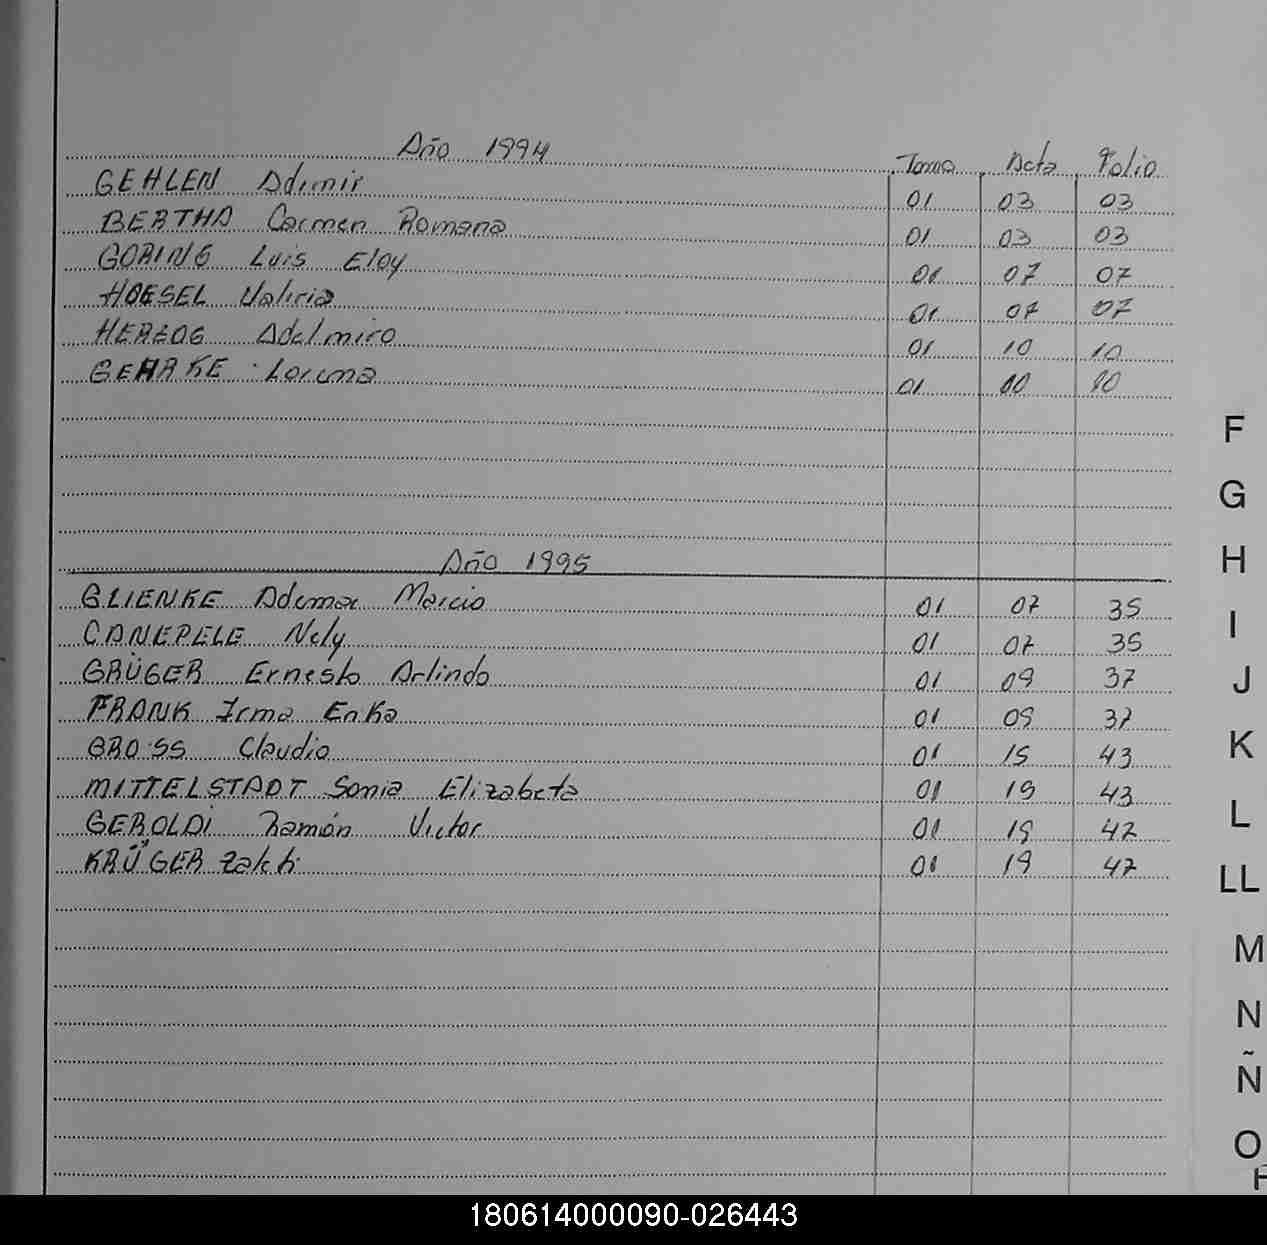 Año 1994 Tomo Acta Folio
GEHLEN Ademir 01 03 03
BERTHA Carmen Romana 01 03 03
GORING Luis Eloy 01 07 07
HOESEL Valiria 01 07 07
HERZOG Adelmiro 01 10 10
GEHRKE Lorena 01 10 10
F
G
H
Año 1995
GLIENKE Ademar Marcio 01 07 35
I
CANEPELE Nely 01 07 35
GRÜGER Ernesto Arlindo 01 09 37
J
FRANK Irma Erika 01 09 37
GROSS Claudio 01 15 43
K
MITTELSTADT Sonia Elizabeta 01 15 43
L
GEROLDI Ramón Victor 01 19 47
KRÜGER 01 19 47
LL
M
N
Ñ
O
180614000090-026443